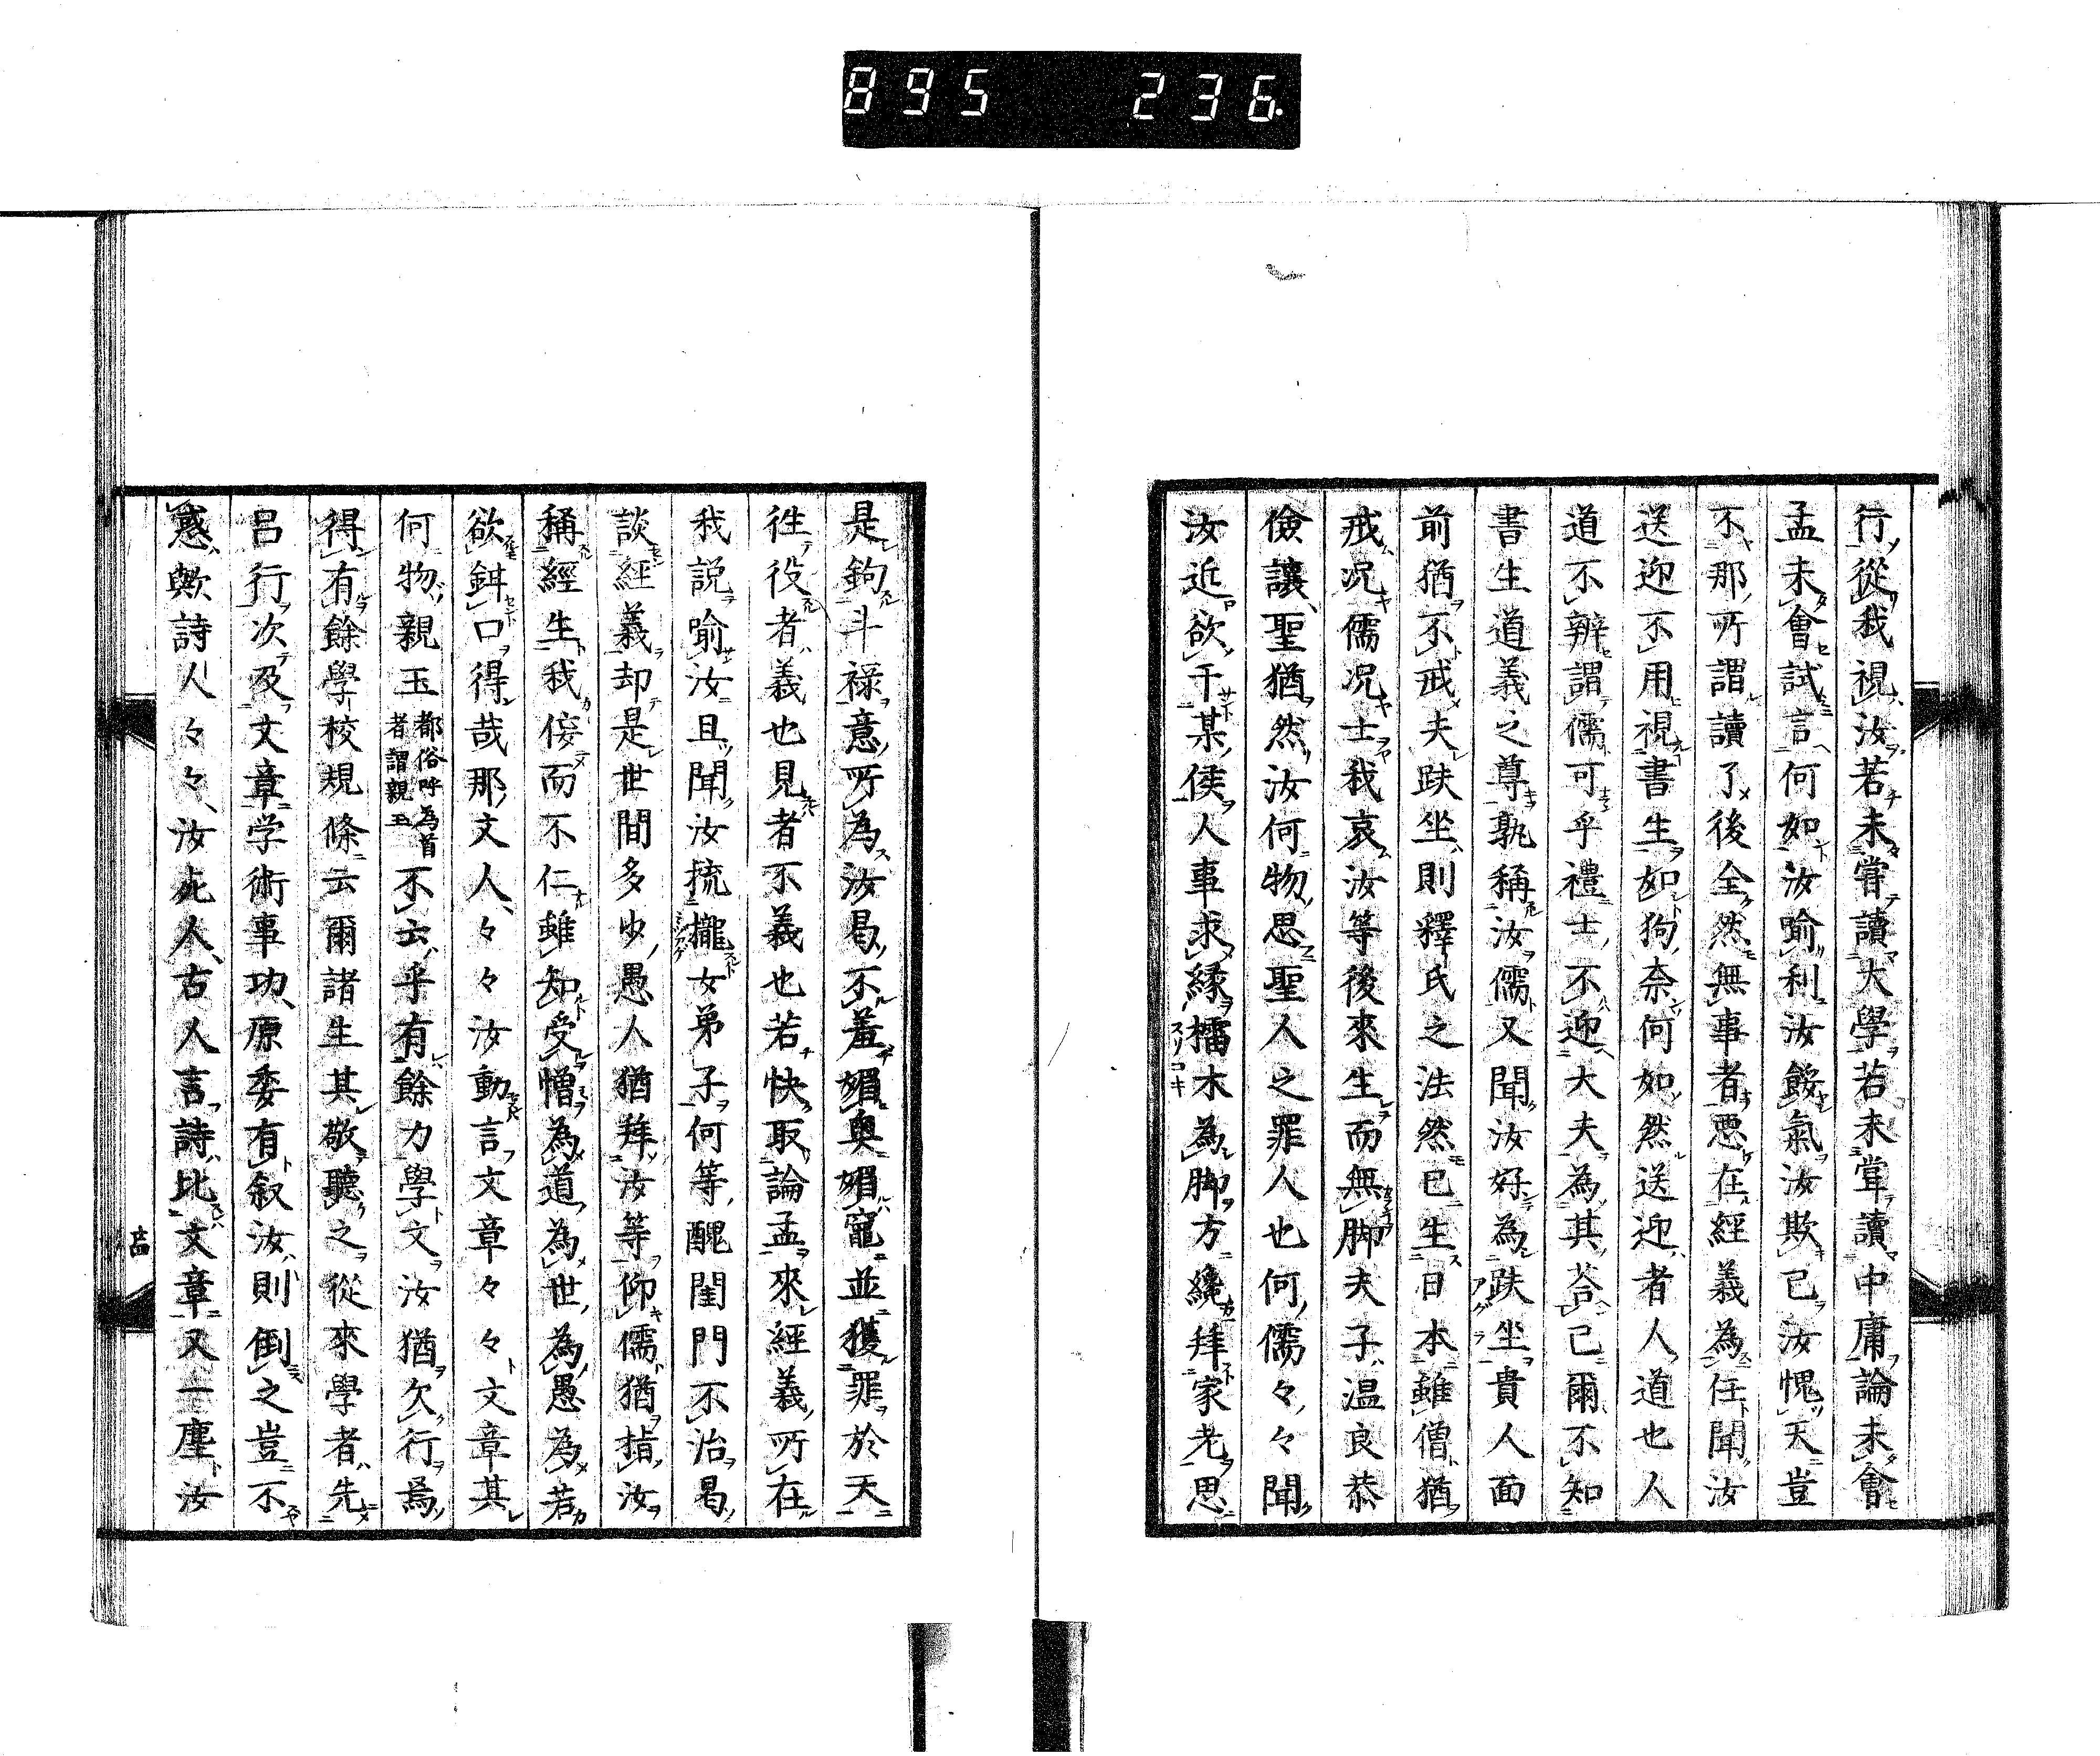 895 236
行從我視汝若未嘗讀大學若未嘗讀中庸論未會
孟未會試言何如汝喻利汝餒氣汝欺己汝愧天豈
不那所謂讀了後全然無事者惡在經義為任聞汝
送迎不用視書生如狗奈何如然送迎者人道也人
道不辨謂儒可乎禮士不迎大夫為其荅己爾不知
書生道義之尊孰稱汝儒又聞汝好為趺坐貴人面
前猶不戒夫趺坐則釋氏之法然已生日本雖僧猶
戒况儒况士我哀汝等後來生而無脚夫子温良恭
儉讓聖猶然汝何物思聖人之罪人也何儒々々聞
汝近欲干某侯人事求緣擂木為脚方纔拜家老思
是鉤斗祿意所為汝曷不羞媚奧媚竈並獲罪於天
徃役者義也見者不義也若快取論孟來經義所在
我説喻汝且聞汝梳攏女弟子何等醜閨門不治曷
談經義却是世間多少愚人猶拜汝等仰儒猶指汝
稱經生我侫而不仁雖知受憎為道為世為愚為若
欲鉗口得哉那文人々々汝動言文章々々文章其
何物親玉都俗呼為首者謂親玉不云乎有餘力學文汝猶欠行焉
得有餘學校規條云爾諸生其敬聽之從來學者先
呂行次及文章学術事功原委有叙汝則倒之豈不
惑歟詩人々々汝死人古人言詩比文章又一塵汝